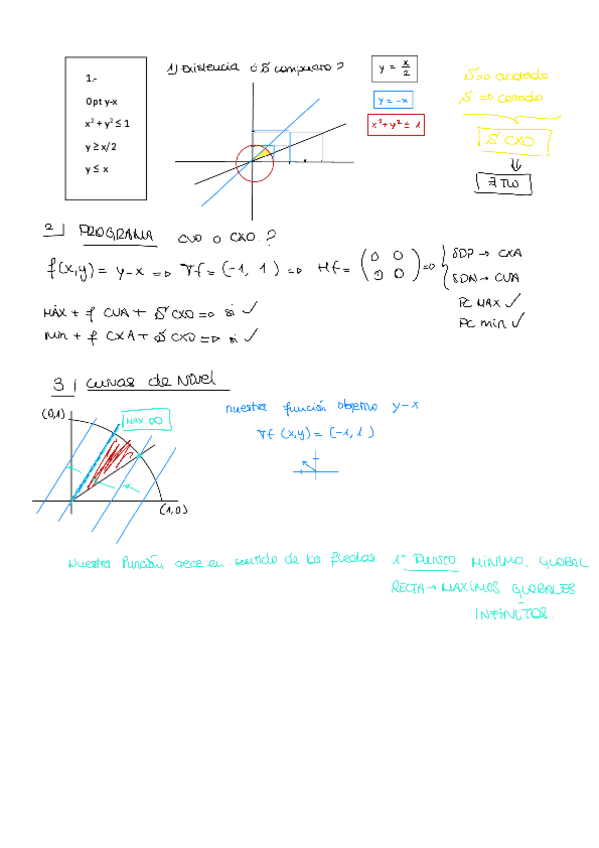 1.-
Opt y-x
x² + y² ≤ 1
y ≥ x/2
y ≤ x
1) Existencia ¿ S compacto ?
y = x/2
y = -x
x²+y² ≤ 1
S => acotado
S => cerrado
S CXO
∃ TW
2) PROGRAMA CVO O CXO ?
f(x,y) = y-x => ∇f = (-1, 1) => Hf = (0 0
0 0) =>
SDP → CXA
SDN → CVA
PC MAX ✓
PC min ✓
MÁX + f CVA + S CXO => si ✓
min + f CXA + S CXO => si ✓
3) Curvas de Nivel
nuestra función objetivo y-x
∇f (x,y) = (-1, 1)
(0,1)
MAX ∞
(1,0)
Nuestra función crece en sentido de las flechas
1º PUNTO MÍNIMO. GLOBAL
RECTA → MAXIMOS GLOBALES
INFINITOS.